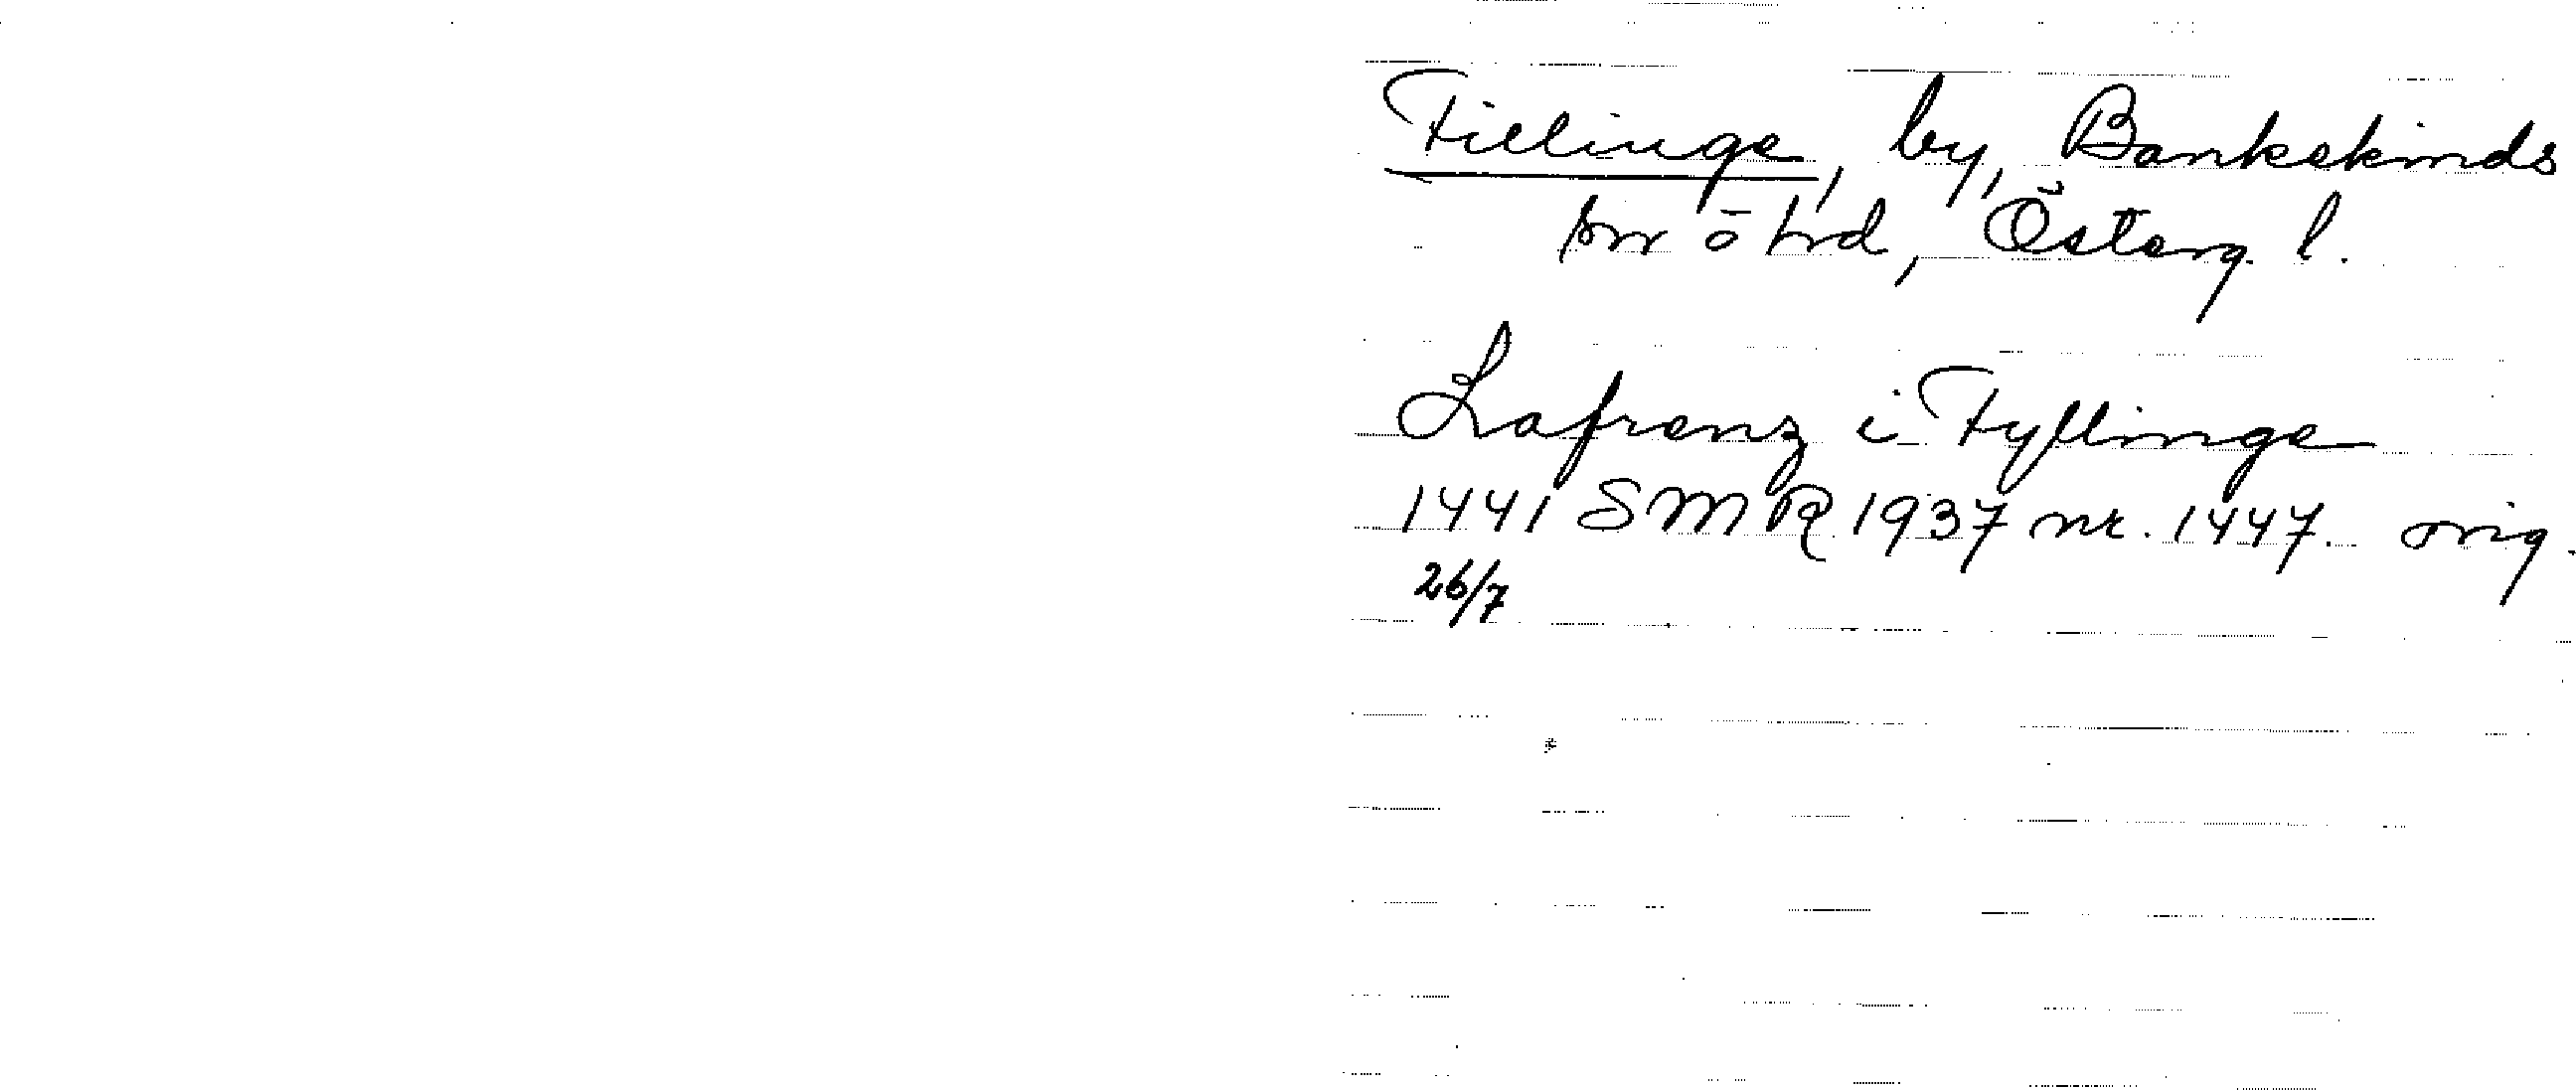 Fillinge, by, Bankekinds
sn o hd, Österg. l.
Lafrenz i Fyllinge
1441 SMR 1937 nr. 1447. orig.
26/7